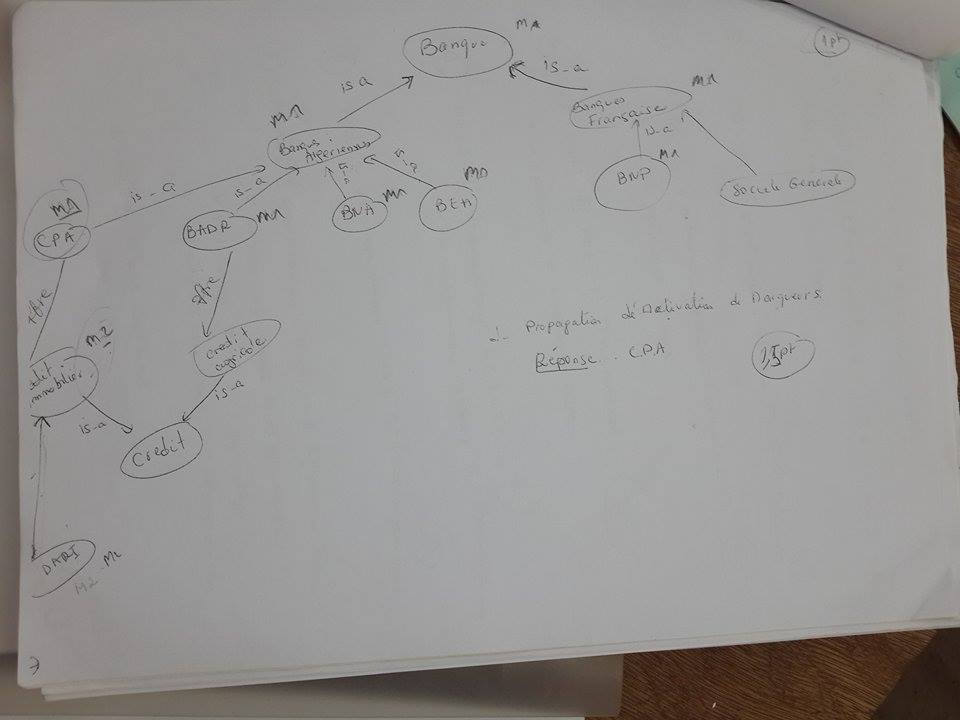 Banque
MA
1pt
is a
is_a
M1
M1
Banques
Algeriennes
Banques
Française
is_a
is_a
is_a
M1
CPA
BADR
M1
BNA
M1
BEA
M1
BNP
M1
Societe Generale
offre
offre
M2
immobilier
credit
agricole
is_a
is_a
Credit
DARI
M2
M2
2- Propagation de Marqueurs
Réponse : CPA
1,5pt